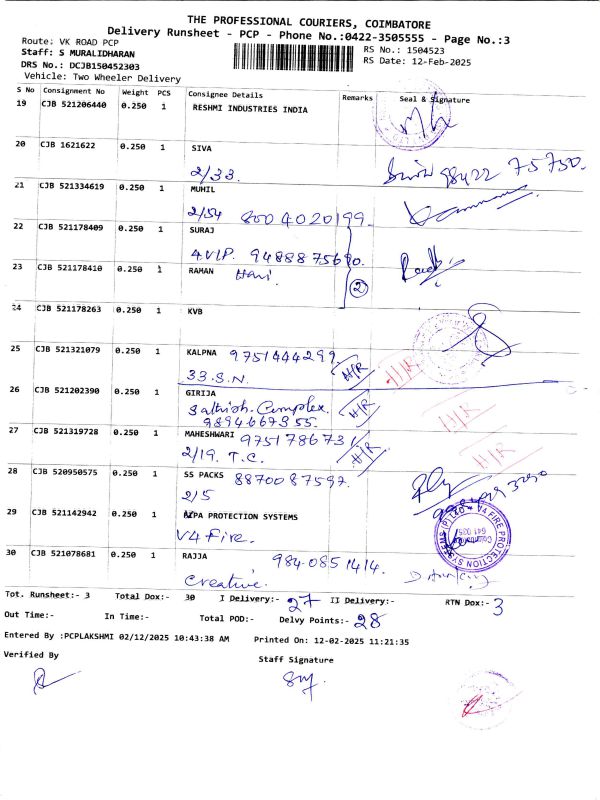 THE PROFESSIONAL COURIERS, COIMBATORE
Delivery Runsheet - PCP - Phone No.:0422-3505555 - Page No.:3
Route: VK ROAD PCP
RS No.: 1504523
Staff: S MURALIDHARAN
RS Date: 12-Feb-2025
DRS No.: DCJB150452303
Vehicle: Two Wheeler Delivery
S No Consignment No Weight PCS Consignee Details Remarks Seal & Signature
19 CJB 521206440 0.250 1 RESHMI INDUSTRIES INDIA
20 CJB 1621622 0.250 1 SIVA
2/33. 98422 75750.
21 CJB 521334619 0.250 1 MUHIL
2/54 800 4020199.
22 CJB 521178409 0.250 1 SURAJ
4 VIP. 9488875690.
23 CJB 521178410 0.250 1 RAHAN Hari.
2
24 CJB 521178263 0.250 1 KVB
25 CJB 521321079 0.250 1 KALPNA 9751444299.
33.S.N. H/R H/R
26 CJB 521202390 0.250 1 GIRIJA
Sathish. Complex. H/R H/R
9894667355.
27 CJB 521319728 0.250 1 MAHESHWARI 9751786731
2/19. T.C. H/R H/R
28 CJB 520950575 0.250 1 SS PACKS 8870087597.
2/5
29 CJB 521142942 0.250 1 PROTECTION SYSTEMS
V4 Fire.
V4 FIRE PROTECTION SYSTEMS (P) LTD
641 035
30 CJB 521078681 0.250 1 RAJJA 984.0851414.
Creative.
Tot. Runsheet:- 3 Total Dox:- 30 I Delivery:- 27 II Delivery:- RTN Dox:- 3
Out Time:- In Time:- Total POD:- Delvy Points:- 28
Entered By :PCPLAKSHMI 02/12/2025 10:43:38 AM Printed On: 12-02-2025 11:21:35
Verified By
Staff Signature